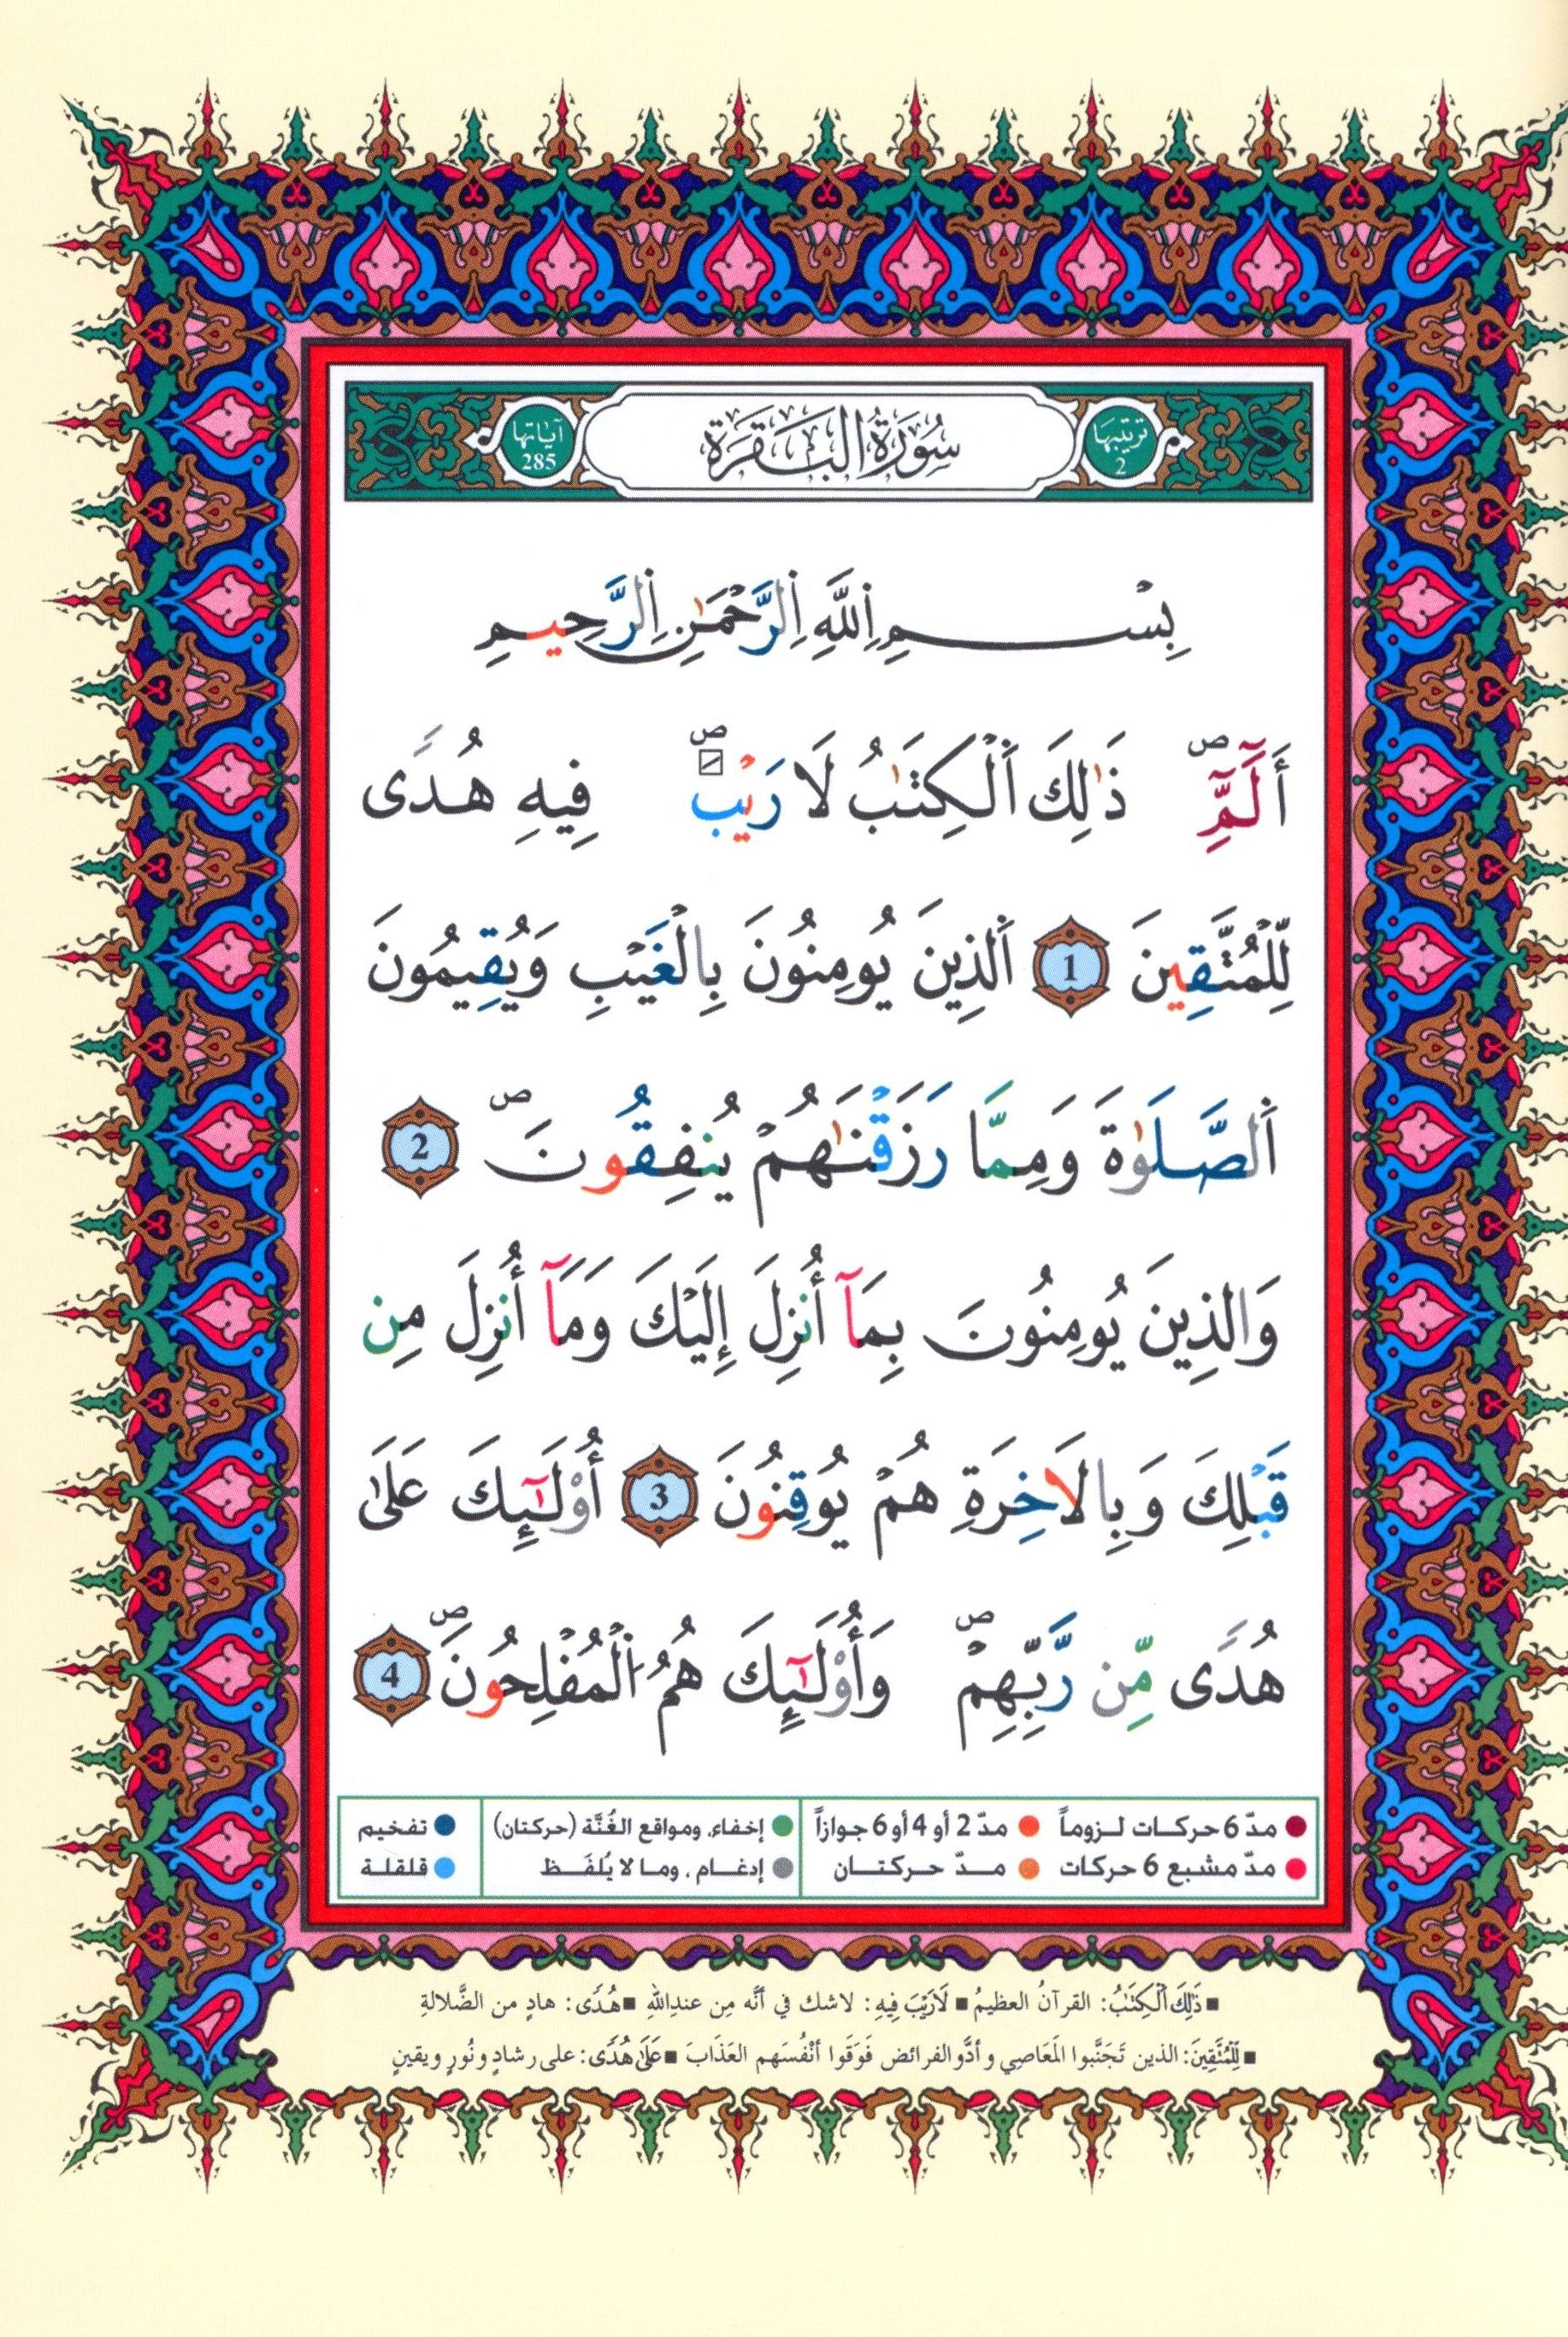 تَرتيبُها 2
سُورَةُ البَقَرَة
آياتها 285
بِسْمِ اِللَّهِ اِلرَّحْمَٰنِ اِلرَّحِيمِ
أَلَٓمِّٓۖ ذَٰلِكَ اَ۬لْكِتَٰبُ لَا رَيْبَۖ فِيهِ هُدىً
لِّلْمُتَّقِينَ 1 اَ۬لذِينَ يُومِنُونَ بِالْغَيْبِ وَيُقِيمُونَ
اَ۬لصَّلَوٰةَ وَمِمَّا رَزَقْنَٰهُمْ يُنفِقُونَۖ 2
وَالذِينَ يُومِنُونَ بِمَآ أُنزِلَ إِلَيْكَ وَمَآ أُنزِلَ مِن
قَبْلِكَ وَبِالَاخِرَةِ هُمْ يُوقِنُونَ 3 أُوْلَٰٓئِكَ عَلَىٰ
هُدىً مِّن رَّبِّهِمْۖ وَأُوْلَٰٓئِكَ هُمُ اُ۬لْمُفْلِحُونَۖ 4
مدّ 6 حركات لـزوماً مدّ 2 أو 4 أو 6 جوازاً إخفاء، ومواقع الغُنَّة (حركتان) تفخيم
مدّ مشبع 6 حركات مـدّ حركتـان إدغـام ، ومـا لا يُلفَـظ قلقلة
■ ذَٰلِكَ اَ۬لْكِتَٰبُ: القرآنُ العظيمُ ■ لَا رَيْبَ فِيهِ: لاشك في أنَّه مِن عندِاللهِ ■ هُدىً: هادٍ من الضَّلالةِ
■ لِّلْمُتَّقِينَ: الذين تَجَنَّبوا المَعَاصِي و أدَّوالفرائض فَوَقَوا أنْفُسَهم العَذَابَ ■ عَلَىٰ هُدىً: على رشادٍ و نُورٍ و يقينٍ